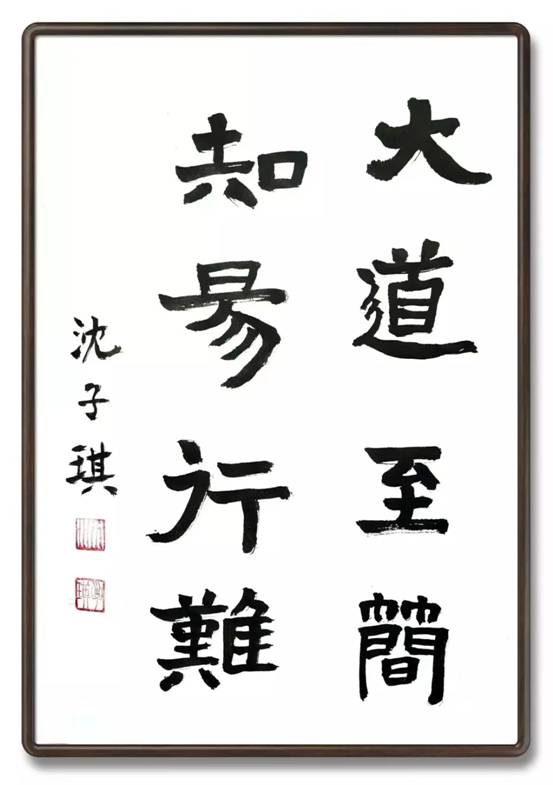 大道至簡
知易行難
沈子琪